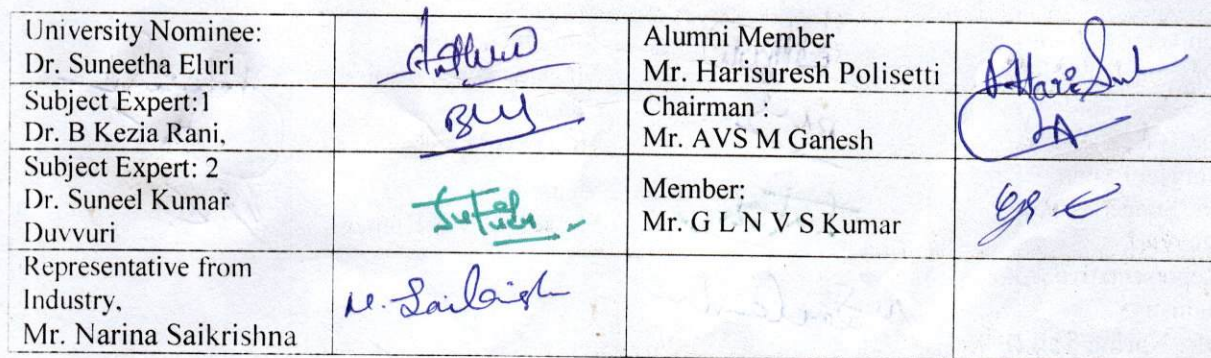 University Nominee:
Dr. Suneetha Eluri
Alumni Member
Mr. Harisuresh Polisetti
Subject Expert:1
Dr. B Kezia Rani,
Chairman :
Mr. AVS M Ganesh
Subject Expert: 2
Dr. Suneel Kumar
Duvvuri
Member:
Mr. G L N V S Kumar
Representative from
Industry,
Mr. Narina Saikrishna